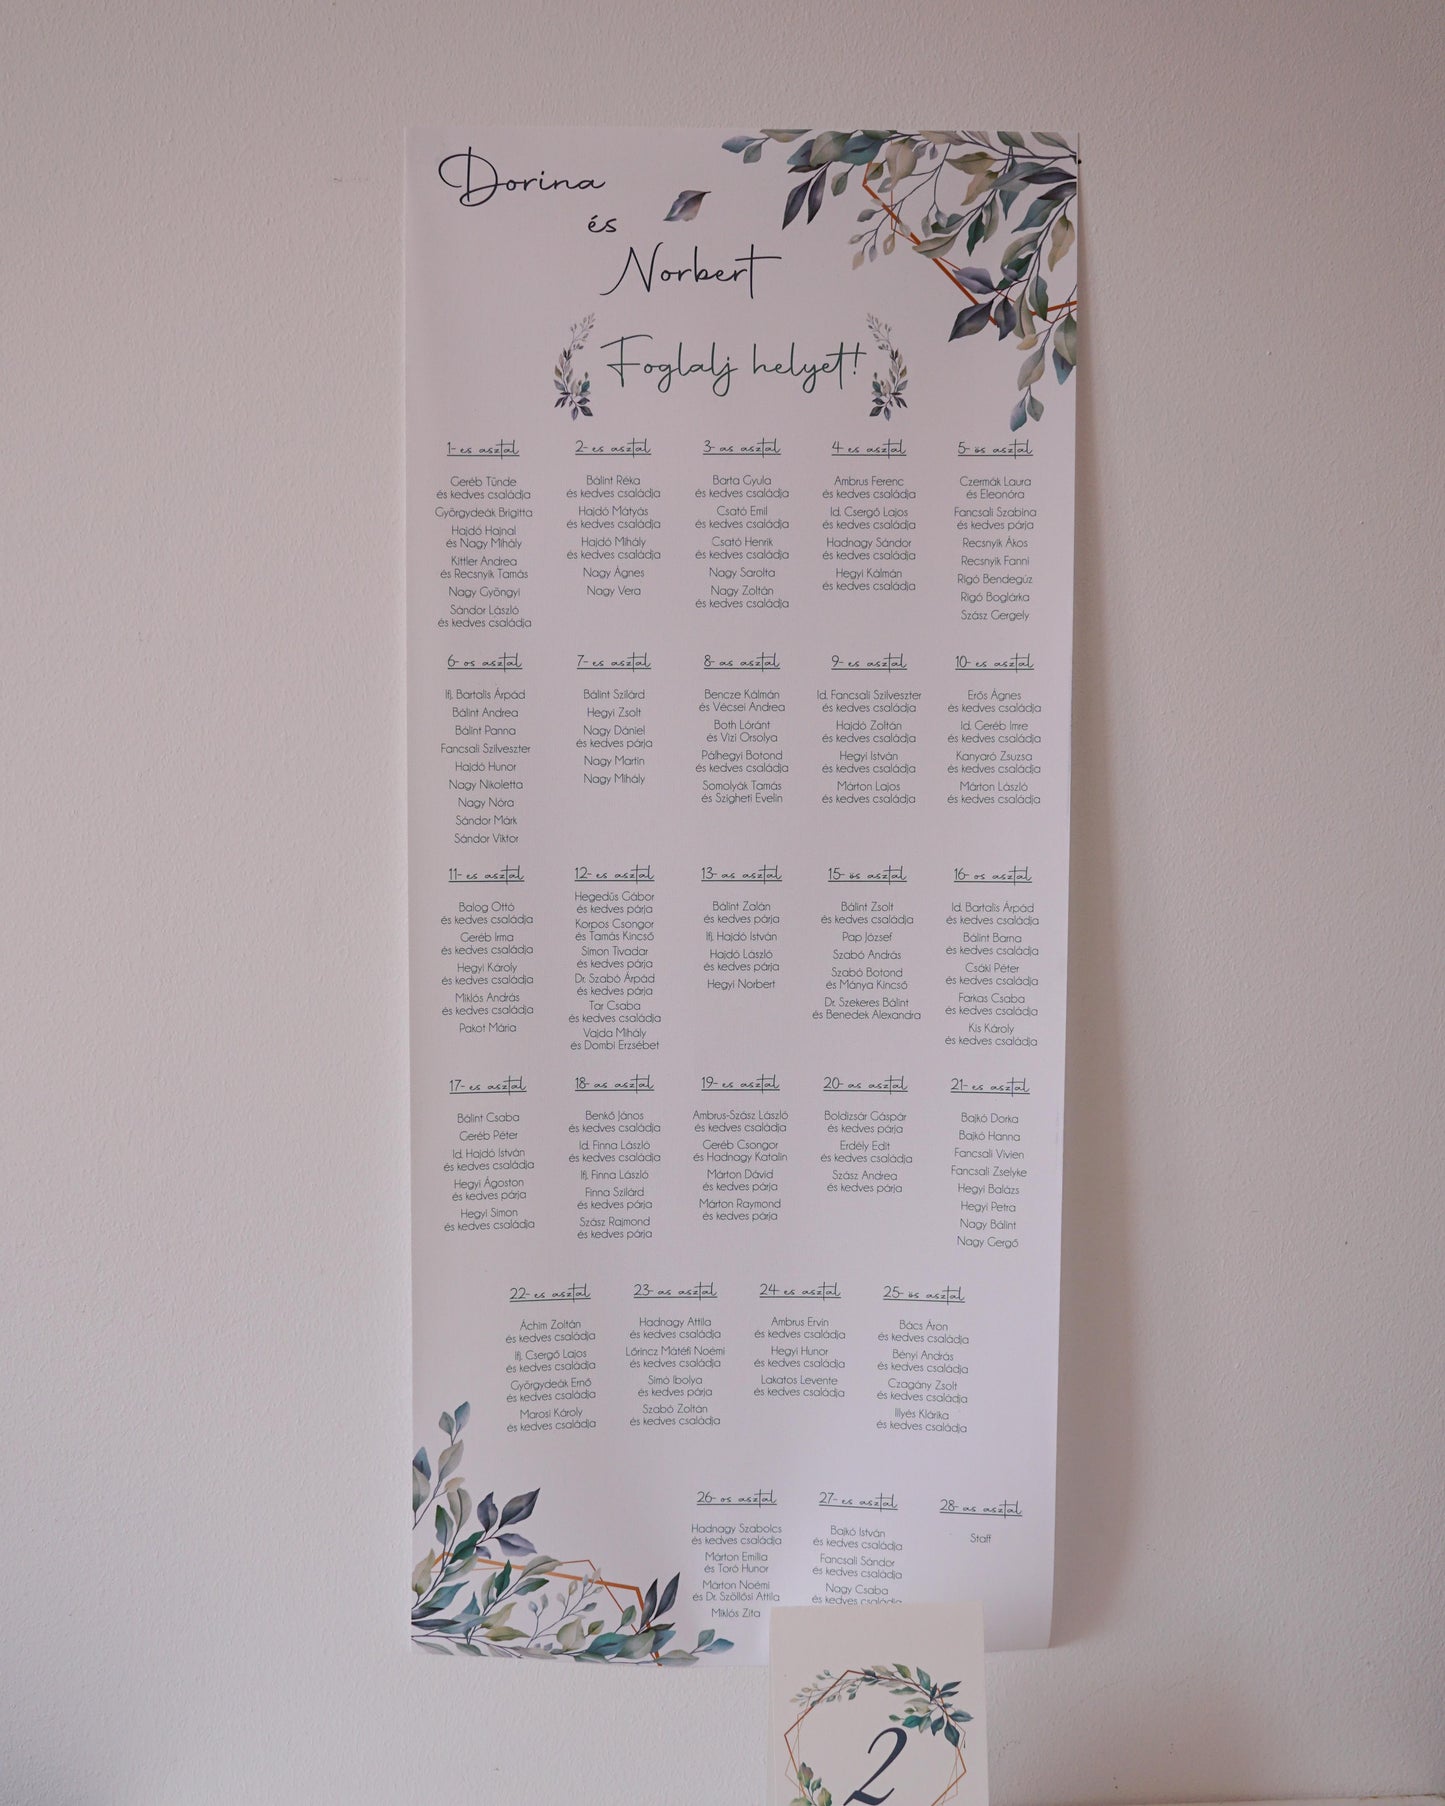 Dorina
és
Norbert
Foglalj helyet!
1-es asztal
Geréb Tünde
és kedves családja
Györgydeák Brigitta
Hajdó Hajnal
és Nagy Mihály
Kittler Andrea
és Recsnyik Tamás
Nagy Gyöngyi
Sándor László
és kedves családja
2-es asztal
Bálint Réka
és kedves családja
Hajdó Mátyás
és kedves családja
Hajdó Mihály
és kedves családja
Nagy Ágnes
Nagy Vera
3-as asztal
Barta Gyula
és kedves családja
Csató Emil
és kedves családja
Csató Henrik
és kedves családja
Nagy Sarolta
Nagy Zoltán
és kedves családja
4-es asztal
Ambrus Ferenc
és kedves családja
Id. Csergő Lajos
és kedves családja
Hadnagy Sándor
és kedves családja
Hegyi Kálmán
és kedves családja
5-ös asztal
Czermák Laura
és Eleonóra
Fancsali Szabina
és kedves párja
Recsnyik Ákos
Recsnyik Fanni
Rigó Bendegúz
Rigó Boglárka
Szász Gergely
6-os asztal
Ifj. Bartalis Árpád
Bálint Andrea
Bálint Panna
Fancsali Szilveszter
Hajdó Hunor
Nagy Nikoletta
Nagy Nóra
Sándor Márk
Sándor Viktor
7-es asztal
Bálint Szilárd
Hegyi Zsolt
Nagy Dániel
és kedves párja
Nagy Martin
Nagy Mihály
8-as asztal
Bencze Kálmán
és Vécsei Andrea
Both Lóránt
és Vizi Orsolya
Pálhegyi Botond
és kedves családja
Somolyák Tamás
és Szigheti Evelin
9-es asztal
Id. Fancsali Szilveszter
és kedves családja
Hajdó Zoltán
és kedves családja
Hegyi István
és kedves családja
Márton Lajos
és kedves családja
10-es asztal
Erős Ágnes
és kedves családja
Id. Geréb Imre
és kedves családja
Kanyaró Zsuzsa
és kedves családja
Márton László
és kedves családja
11-es asztal
Balog Ottó
és kedves családja
Geréb Irma
és kedves családja
Hegyi Károly
és kedves családja
Miklós András
és kedves családja
Pakot Mária
12-es asztal
Hegedűs Gábor
és kedves párja
Korpos Csongor
és Tamás Kincső
Simon Tivadar
és kedves párja
Dr. Szabó Árpád
és kedves párja
Tar Csaba
és kedves családja
Vajda Mihály
és Dombi Erzsébet
13-as asztal
Bálint Zalán
és kedves párja
Ifj. Hajdó István
Hajdó László
és kedves párja
Hegyi Norbert
15-ös asztal
Bálint Zsolt
és kedves családja
Pap József
Szabó András
Szabó Botond
és Mánya Kincső
Dr. Szekeres Bálint
és Benedek Alexandra
16-os asztal
Id. Bartalis Árpád
és kedves családja
Bálint Barna
és kedves családja
Csáki Péter
és kedves családja
Farkas Csaba
és kedves családja
Kis Károly
és kedves családja
17-es asztal
Bálint Csaba
Geréb Péter
Id. Hajdó István
és kedves családja
Hegyi Ágoston
és kedves párja
Hegyi Simon
és kedves családja
18-as asztal
Benkő János
és kedves családja
Id. Finna László
és kedves családja
Ifj. Finna László
Finna Szilárd
és kedves párja
Szász Rajmond
és kedves párja
19-es asztal
Ambrus-Szász László
és kedves családja
Geréb Csongor
és Hadnagy Katalin
Márton Dávid
és kedves párja
Márton Raymond
és kedves párja
20-as asztal
Boldizsár Gáspár
és kedves párja
Erdély Edit
és kedves családja
Szász Andrea
és kedves párja
21-es asztal
Bajkó Dorka
Bajkó Hanna
Fancsali Vivien
Fancsali Zselyke
Hegyi Balázs
Hegyi Petra
Nagy Bálint
Nagy Gergő
22-es asztal
Áchim Zoltán
és kedves családja
Ifj. Csergő Lajos
és kedves családja
Györgydeák Ernő
és kedves családja
Marosi Károly
és kedves családja
23-as asztal
Hadnagy Attila
és kedves családja
Lőrincz Mátéfi Noémi
és kedves családja
Simó Ibolya
és kedves párja
Szabó Zoltán
és kedves családja
24 es asztal
Ambrus Ervin
és kedves családja
Hegyi Hunor
és kedves családja
Lakatos Levente
és kedves családja
25-ös asztal
Bács Áron
és kedves családja
Bényi András
és kedves családja
Czagány Zsolt
és kedves családja
Illyés Klárika
és kedves családja
26-os asztal
Hadnagy Szabolcs
és kedves családja
Márton Emília
és Toró Hunor
Márton Noémi
és Dr. Szöllősi Attila
Miklós Zita
27-es asztal
Bajkó István
és kedves családja
Fancsali Sándor
és kedves családja
Nagy Csaba
és kedves családja
28-as asztal
Staff
2